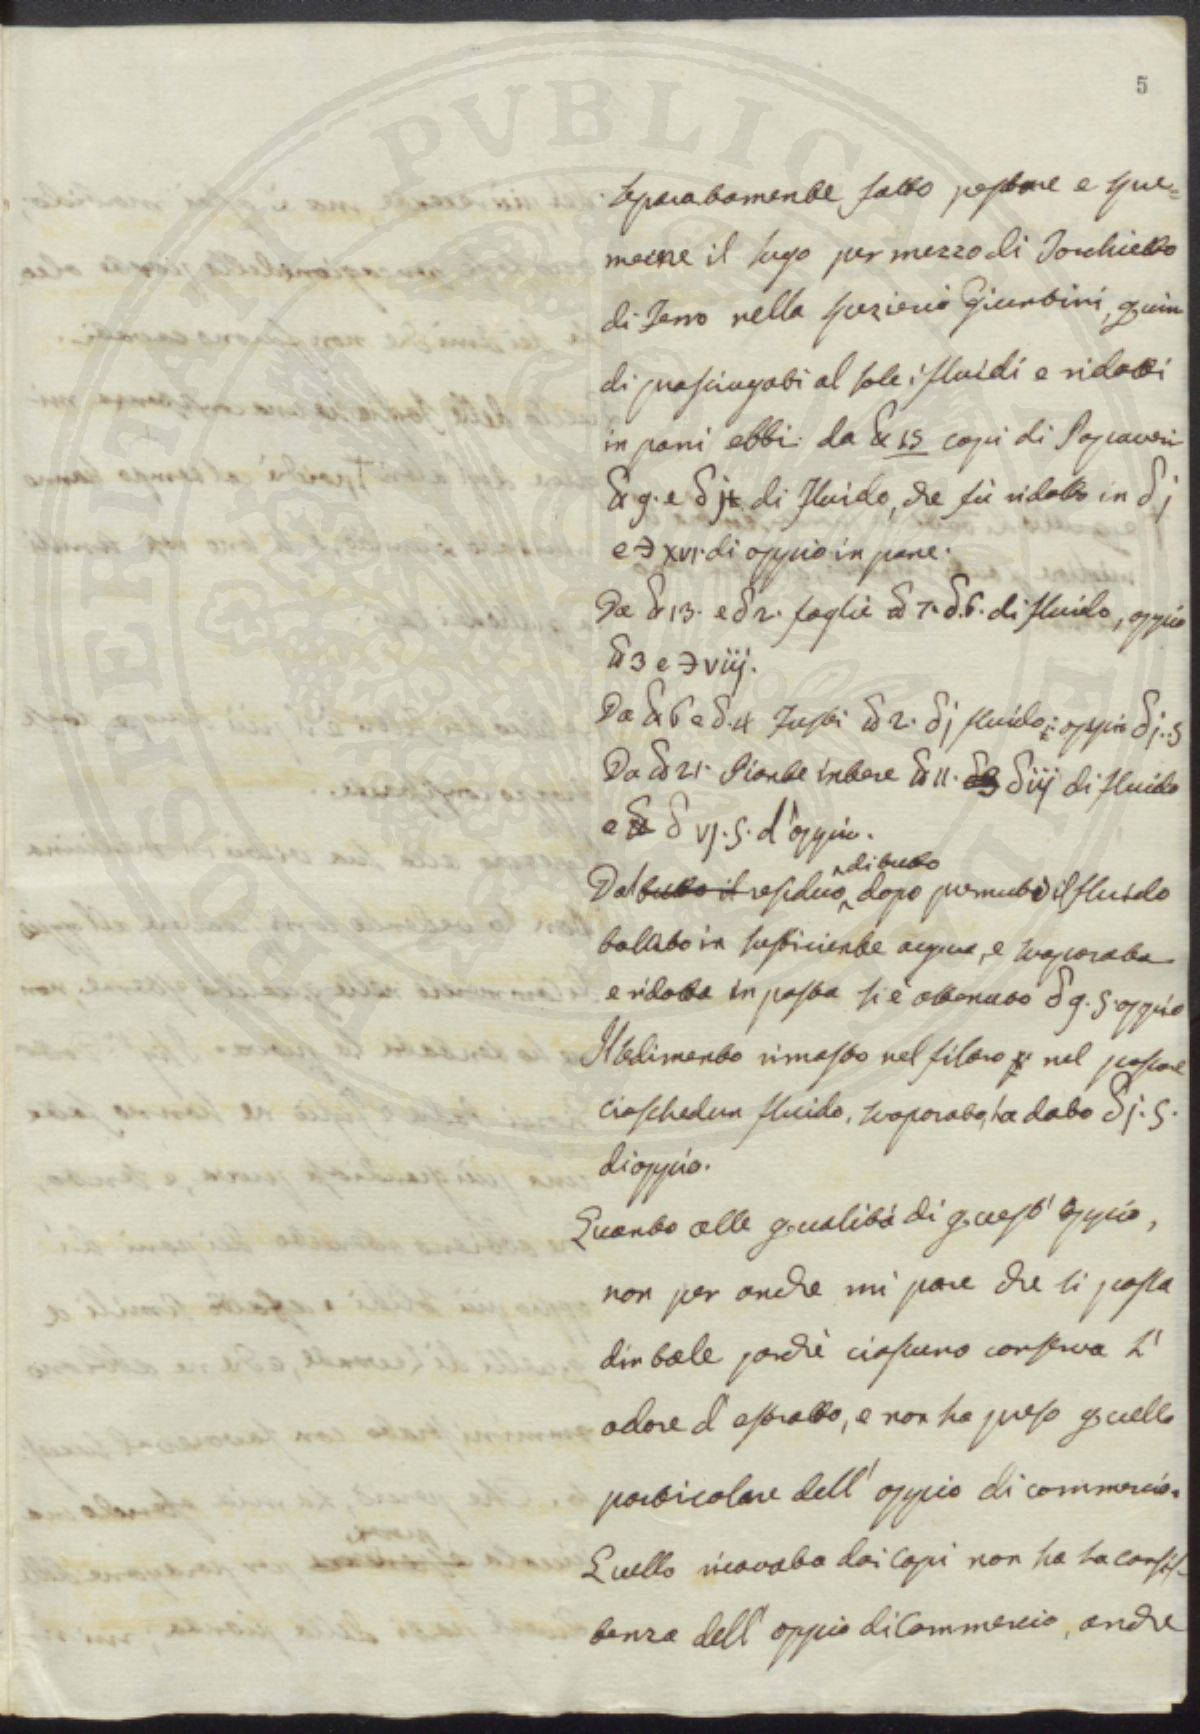 5
separatamente fatto pestare e spre=
merne il sugo per mezzo di Torchietto
di ferro nella spezieria Giuntini, quin
di prosciugati al sole i fluidi e ridotti
in pani ebbi: da ℔ 15 capi di Papaveri
℔ 9. e ʒ di Fluido, che fù ridotto in ʒ j
e ℈ xvi. di oppio in pane.
Da ℔ 13. e ʒ 2. foglie ℔ 7. ʒ. 6. di fluido, oppio
3 e ℈ viij.
Da ℔ 6 e ʒ. 4 Fusti ℔ 2. ʒ j fluido: oppio ʒ j. s
Da ℔ 21. Piante intere ℔ 11. ʒ iij di fluido
e ʒ vj. s. d'oppio.
di tutto
Dal tutto il residuo, dopo premuto il fluido
bollito in sufficiente acqua, e svaporata
e ridotta in pasta si è ottenuto ʒ 9. s. oppio
Il sedimento rimasto nel filtro nel passare
ciaschedun fluido, svaporato, ha dato ʒ j. s.
di oppio.
Quanto alle qualità di quest' oppio,
non per anche mi pare che si possa
dir tale perchè ciascuno conserva l'
odore d' estratto, e non ha preso quello
particolare dell' oppio di commercio.
Quello ricavato dai Capi non ha la consis-
tenza dell' oppio di Commercio, anche
PUBLICA